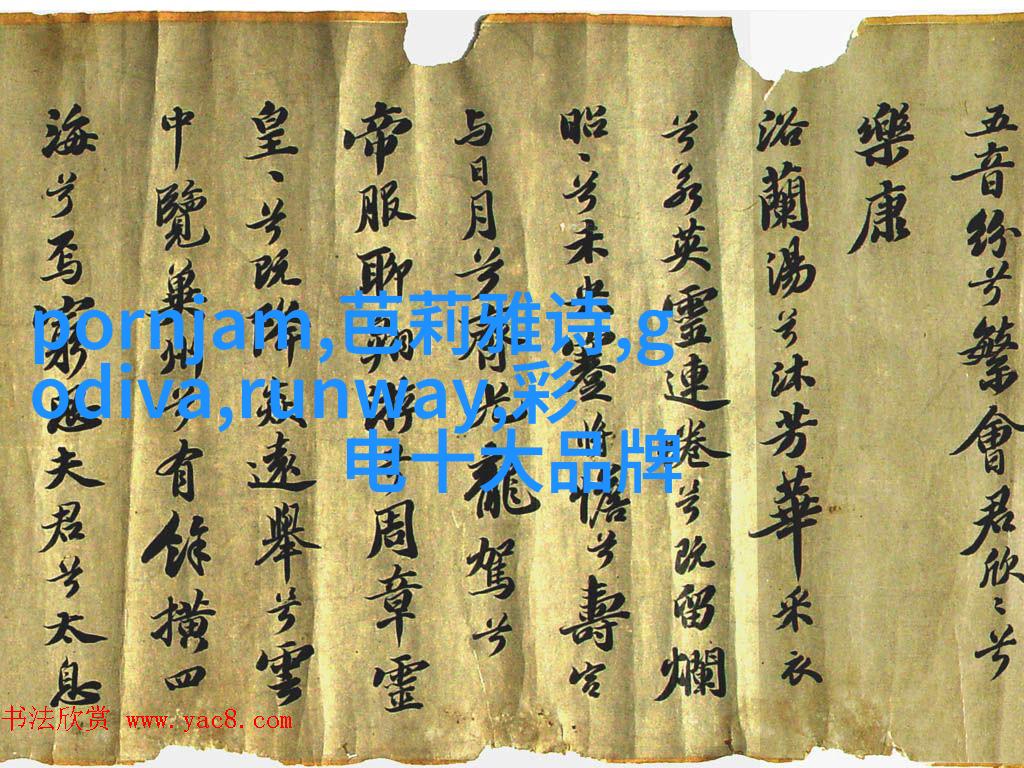 五音紛兮繁會君欣〻兮
樂康
浴蘭湯兮沐芳華采衣
兮若英靈連卷兮既留爛
昭〻兮未央蹇將憺兮壽宮
与日月兮齊光龍駕兮
帝服聊翱游兮周章靈
皇〻兮既降猋遠舉兮雲
中覽冀州兮有餘橫四
海兮焉窮思夫君兮太息
pornjam,芭莉雅诗,g
odiva,runway,彩
电十大品牌
书法欣赏 www.yac8.com